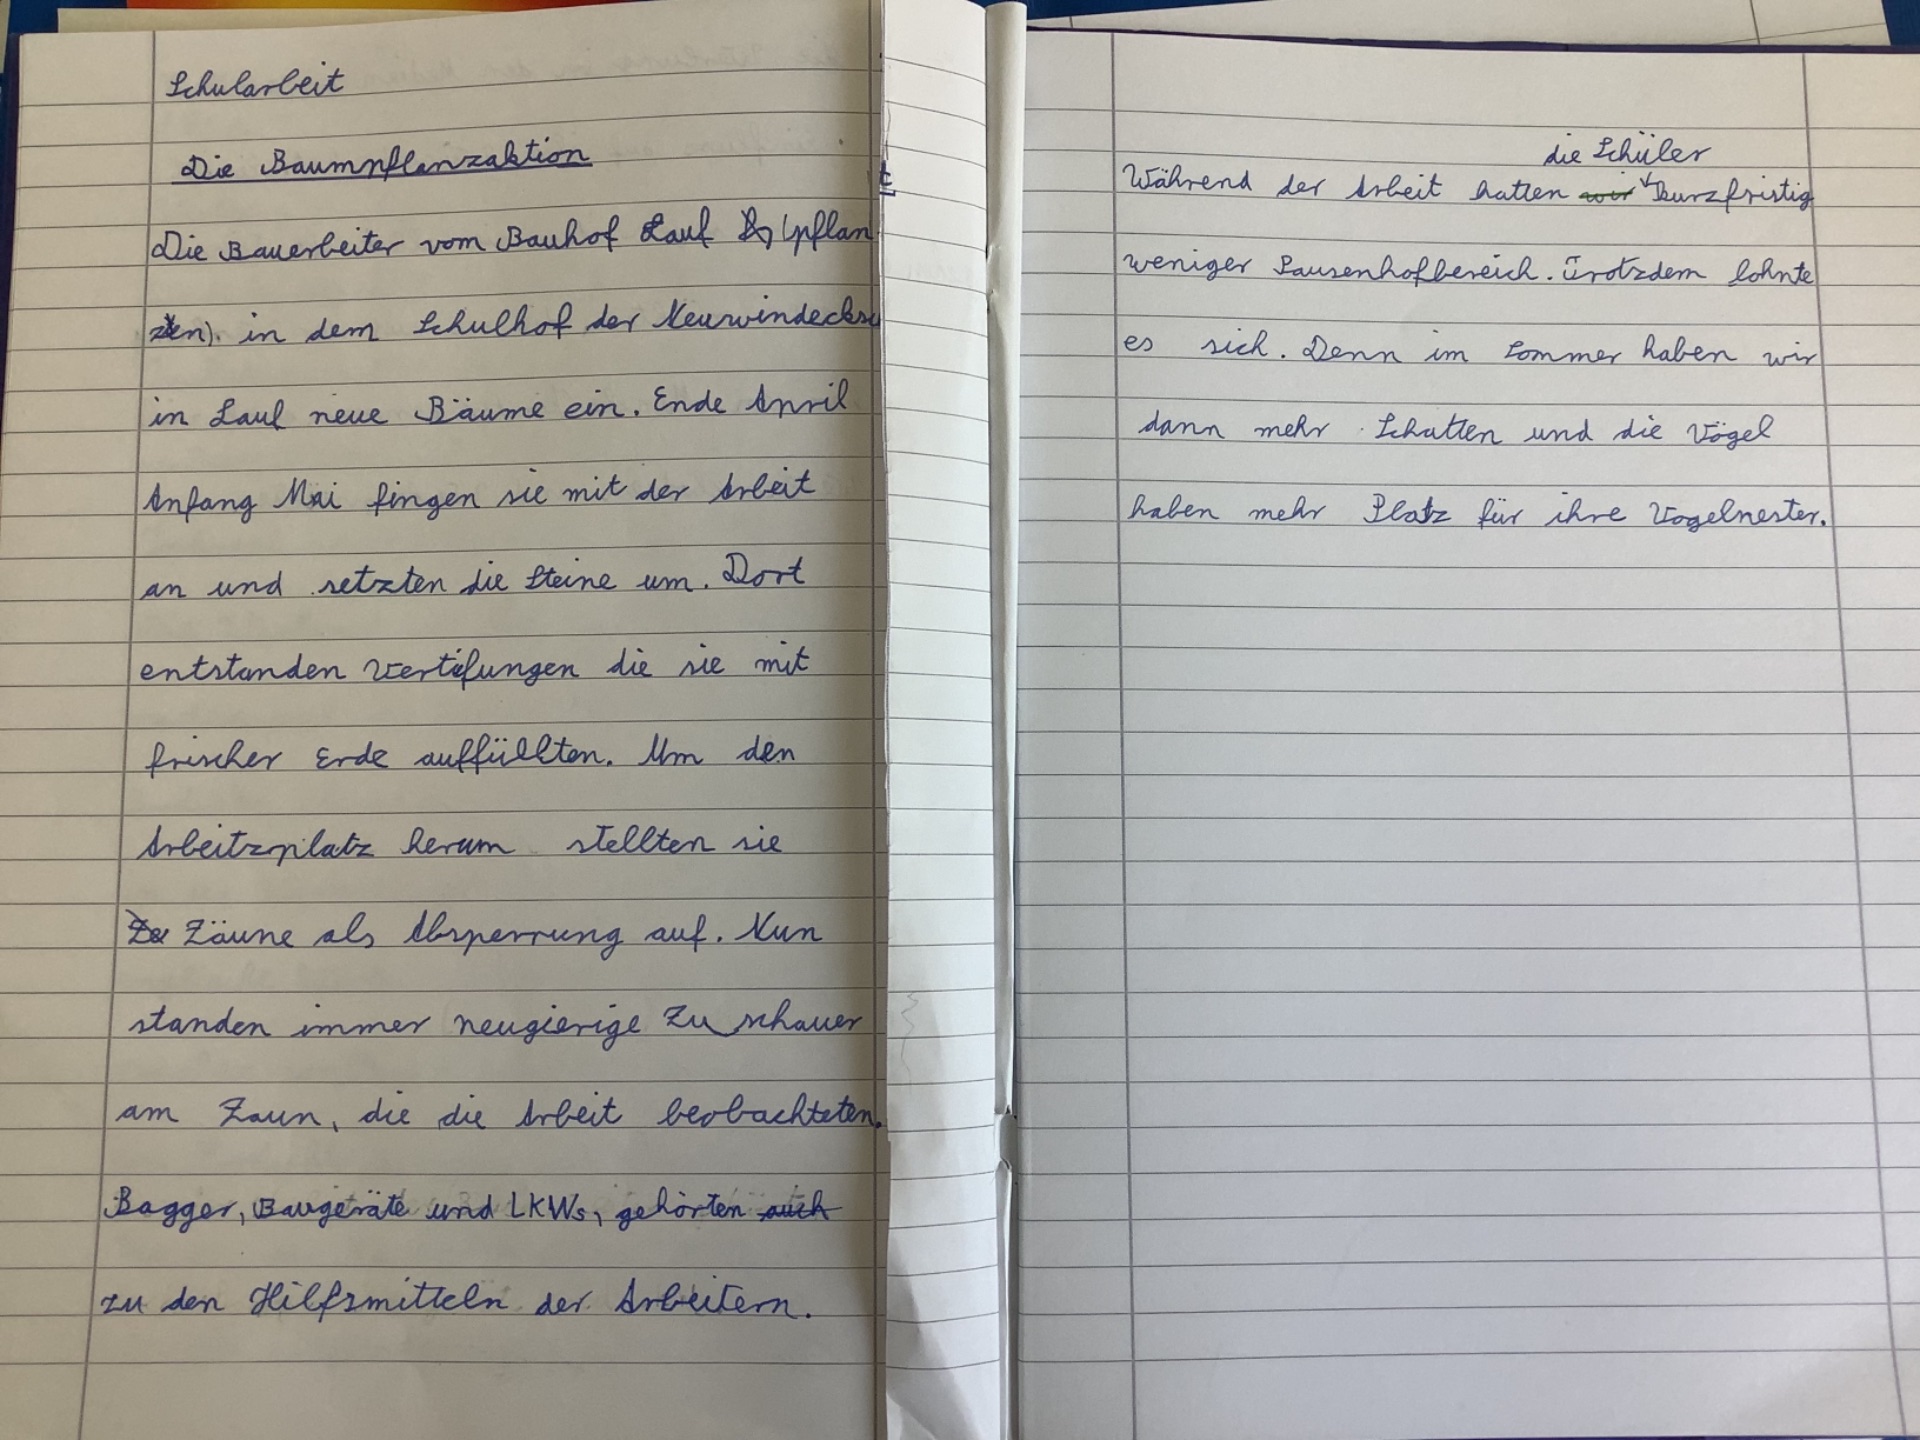 Schularbeit
Die Baumpflanzaktion
Die Bauerbeiter vom Bauhof Lauf (pflan
zten) in dem Schulhof der Neuwindecksc
in Lauf neue Bäume ein. Ende April
Anfang Mai fingen sie mit der Arbeit
an und setzten die Steine um. Dort
entstanden Vertifungen die sie mit
frischer Erde auffüllten. Um den
Arbeitzplatz herum stellten sie
Zä Zäune als Absperrung auf. Nun
standen immer neugierige Zuschauer
am Zaun, die die Arbeit beobachteten.
Bagger, Baugeräte und LKWs, gehörten auch
zu den Hilfsmitteln der Arbeitern.
die Schüler
Während der Arbeit hatten wir kurzfristig
weniger Pausenhofbereich. Trotzdem lohnte
es sich. Denn im Sommer haben wir
dann mehr Schatten und die Vögel
haben mehr Platz für ihre Vogelnester.